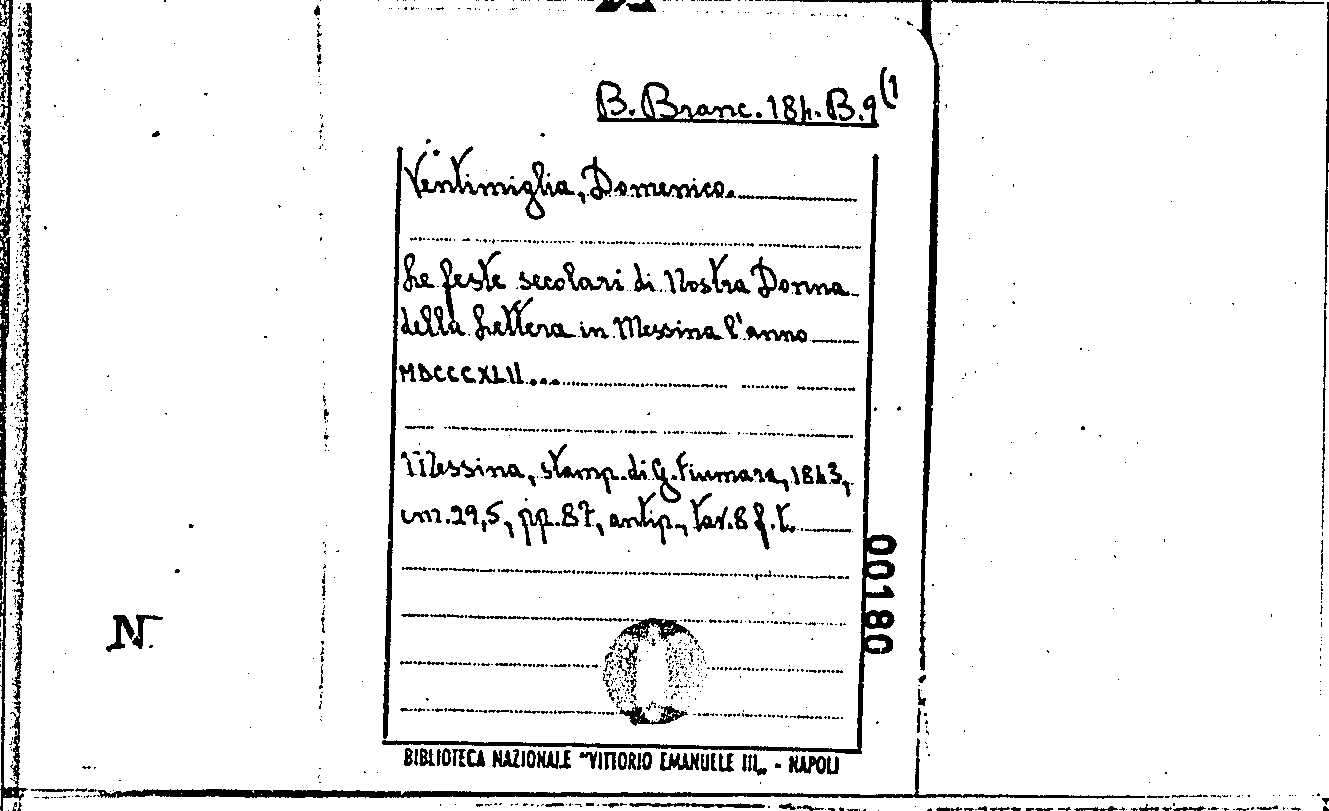 B. Branc. 184. B. 9 (1
Ventimiglia, Domenico.
Le feste secolari di Nostra Donna
della Lettera in Messina l'anno
MDCCCXLII...
Messina, stamp. di G. Fiumara, 1843,
cm. 29,5, pp. 87, antip., tav. 8 f. t.
00180
N.
BIBLIOTECA NAZIONALE "VITTORIO EMANUELE III„ - NAPOLI